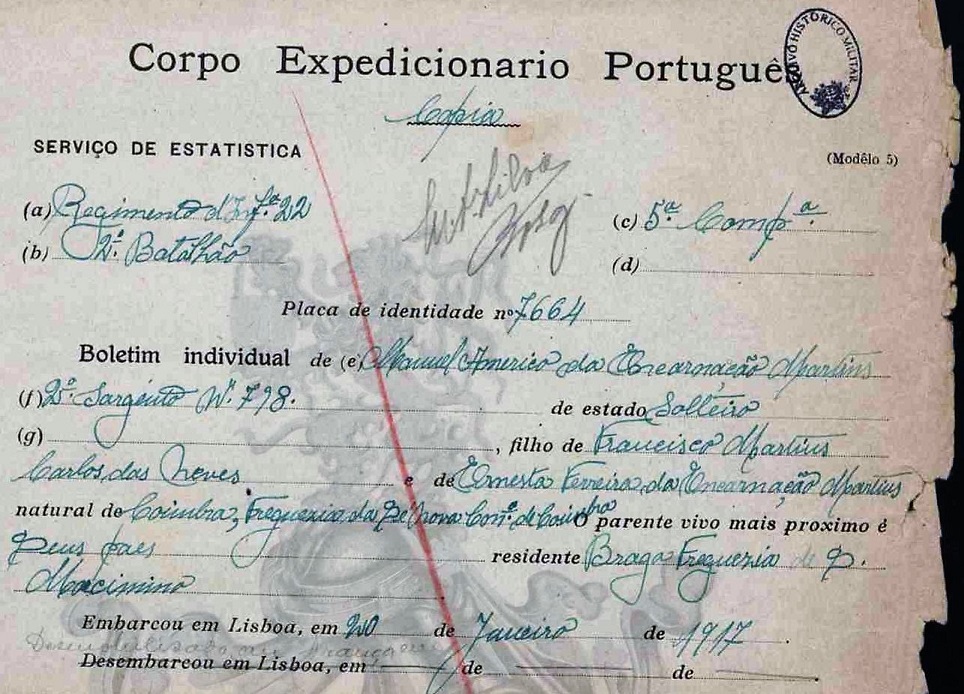 Corpo Expedicionario Português
ARQUIVO HISTÓRICO MILITAR
Copia
SERVIÇO DE ESTATISTICA
(Modêlo 5)
(a) Regimento d'Inf.ª 22
(c) 5.ª Comp.ª
(b) 2.º Batalhão
(d)
Placa de identidade nº 7664
Boletim individual de (e) Manuel Americo da Encarnação Martins
(f) 2.º Sargento Nº 798.
de estado Solteiro
(g) , filho de Francisco Martins
Carlos das Neves e de Ernesta Ferreira da Encarnação Martins
natural de Coimbra, Freguezia da Sé Nova Con.º de Coimbra O parente vivo mais proximo é
Seus paes residente Braga Freguezia de S.
Maximino
Embarcou em Lisboa, em 20 de Janeiro de 1917
Desembarcou em Lisboa, em de de